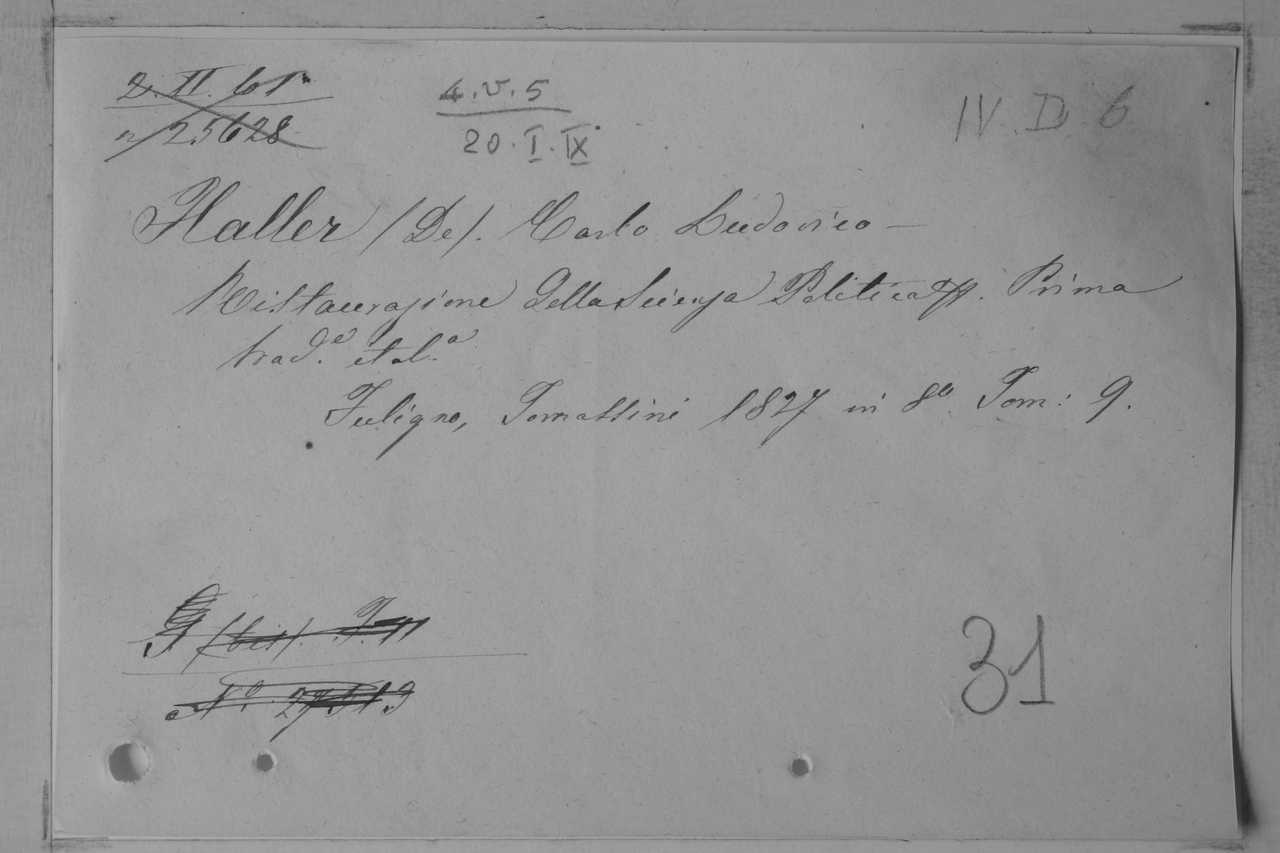 2. II. 61
n 25628
4.V.5
20.I.IX
IV.D.6
Haller (De). Carlo Ludovico —
Ristaurazione Della Scienza Politica. Prima
trad.e ital.a
Fuligno, Tomassini 1827 in 8o. Tom: 9.
(bis).
No.
31